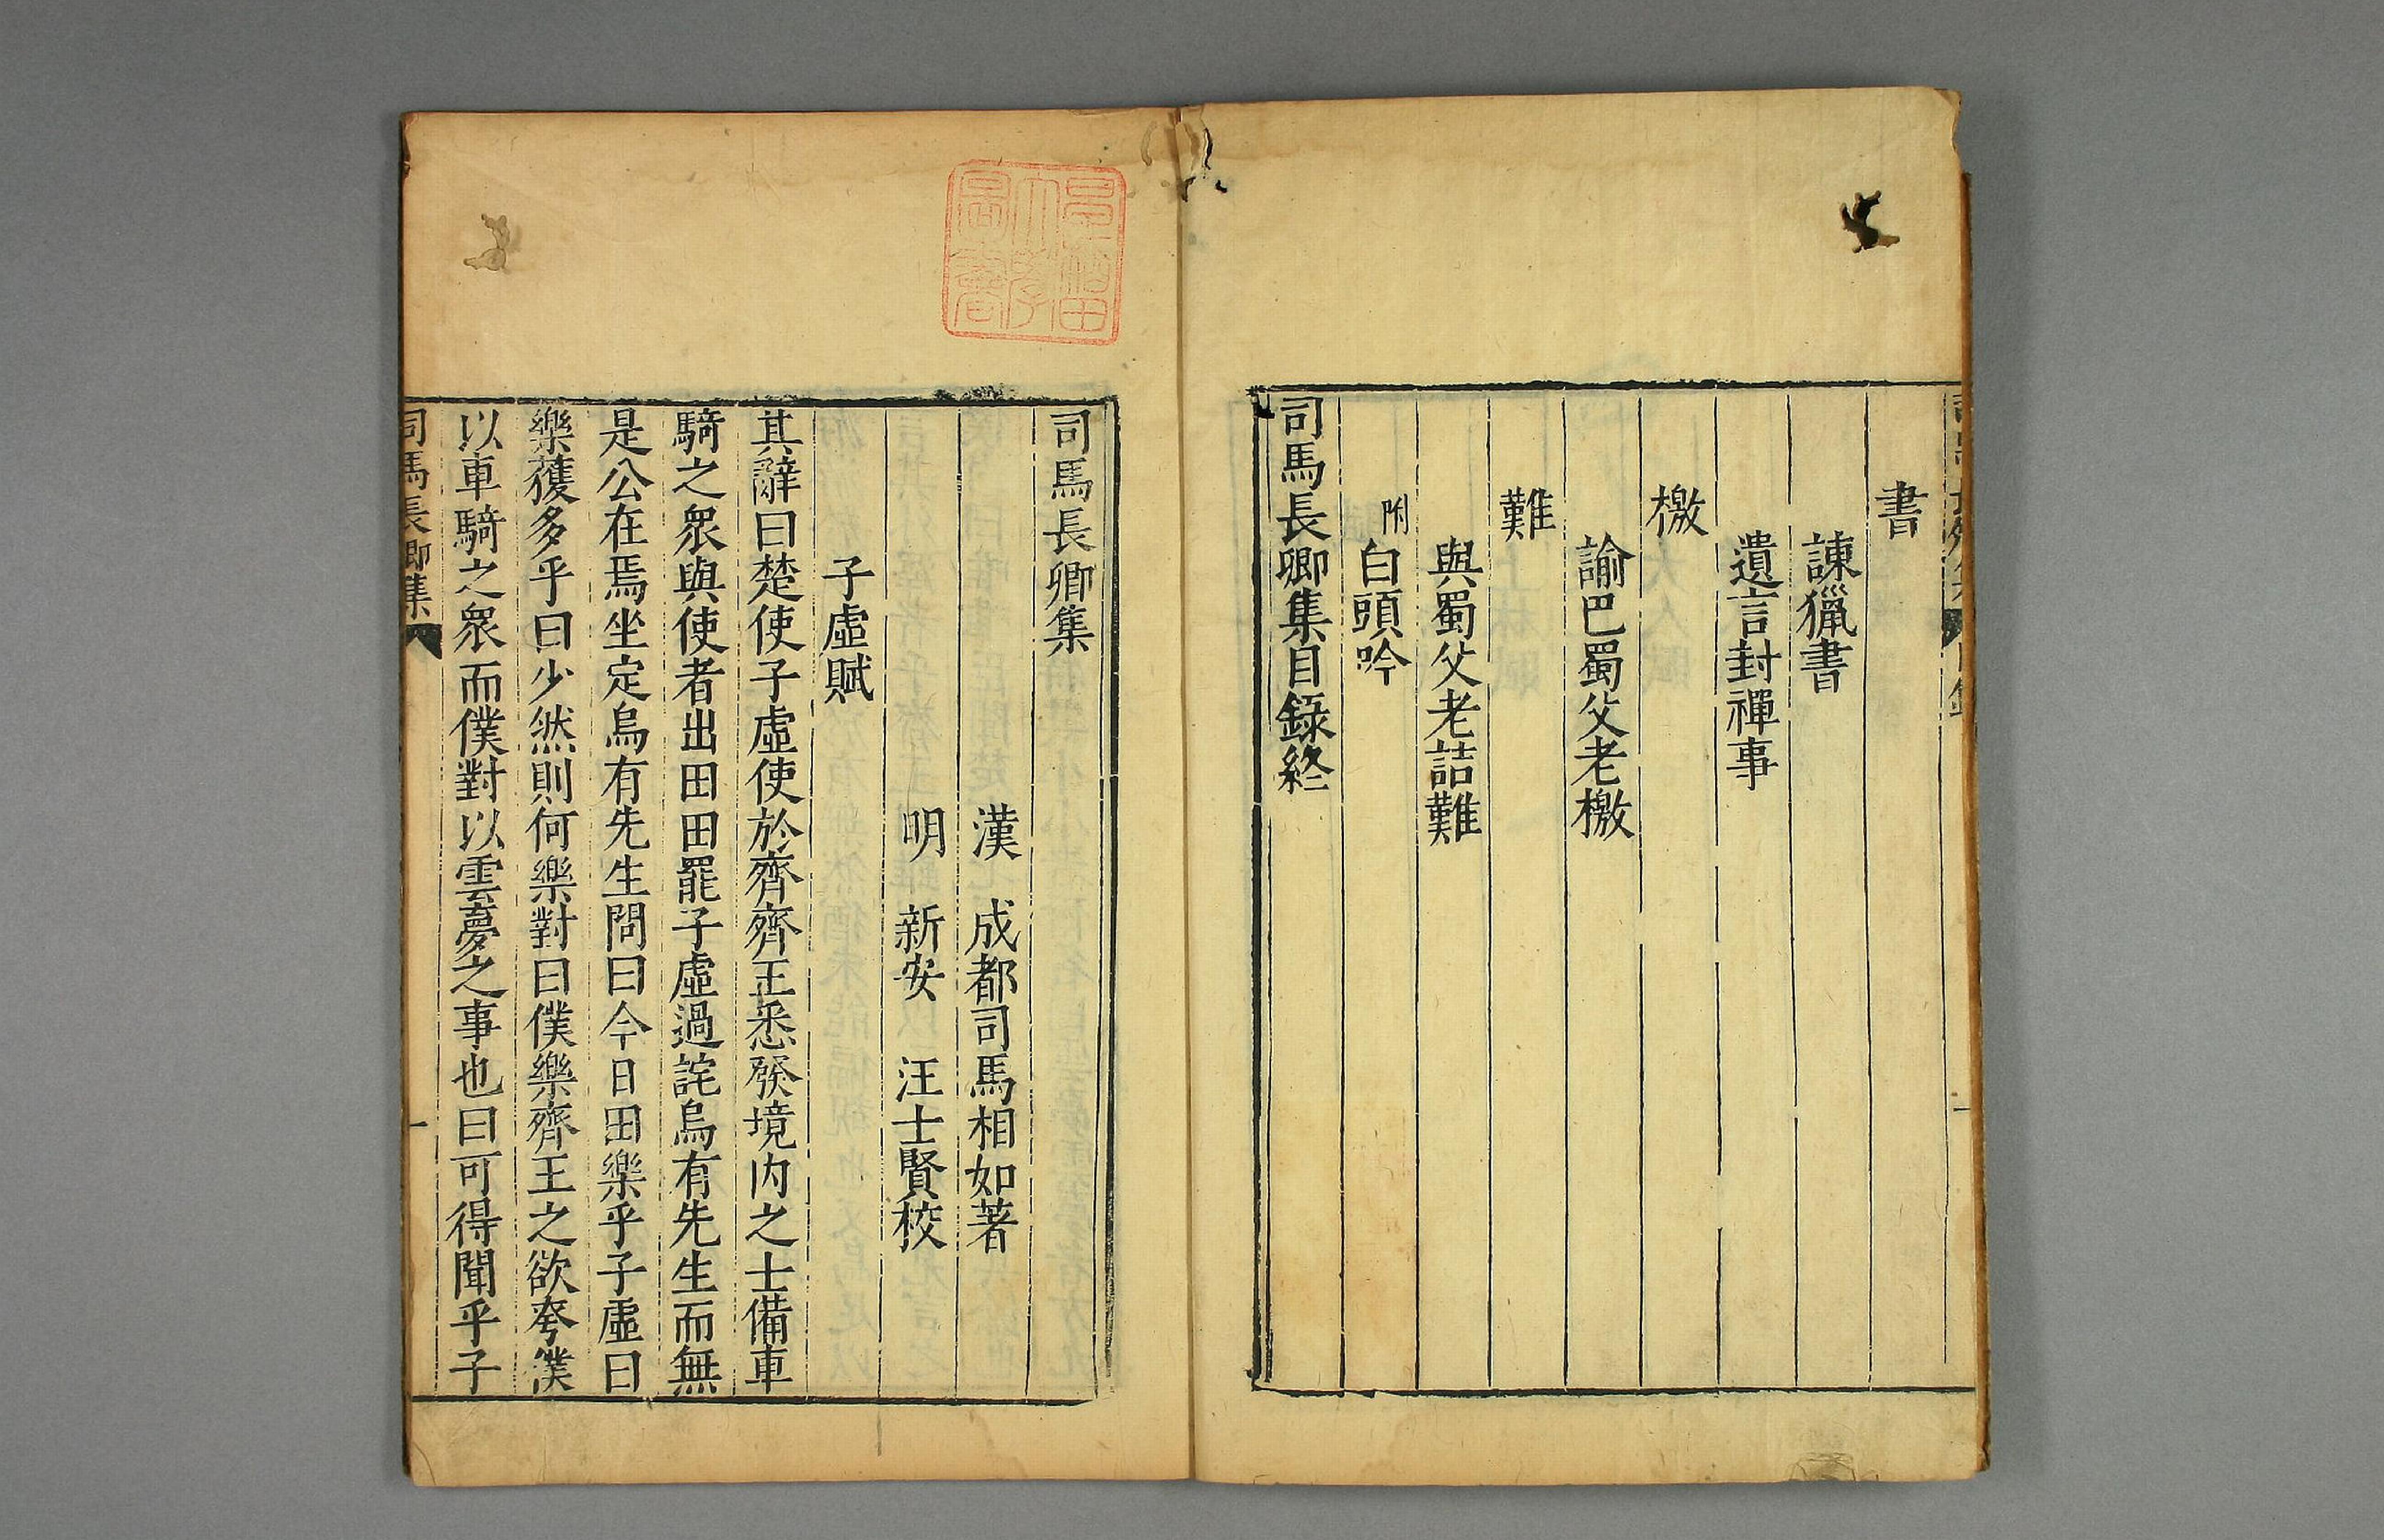 書
諫獵書
遺言封禪事
檄
諭巴蜀父老檄
難
與蜀父老詰難
附白頭吟
司馬長卿集目錄終
司馬長卿集
漢 成都司馬相如著
明 新安 汪士賢校
子虛賦
其辭曰楚使子虛使於齊齊王悉發境内之士備車
騎之眾與使者出田田罷子虛過詫烏有先生而無
是公在焉坐定烏有先生問曰今日田樂乎子虛曰
樂獲多乎曰少然則何樂對曰僕樂齊王之欲夸僕
以車騎之眾而僕對以雲夢之事也曰可得聞乎子
司馬長卿集 一